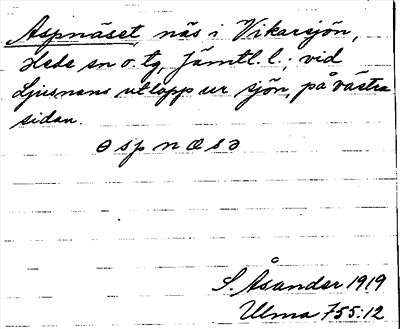 Aspnäset, näs i Vikarsjön,
Hede sn o. tg, Jämtl. l.; vid
Ljusnans utlopp ur sjön, på västra
sidan.
S. Åsander 1919
Ulma 755:12